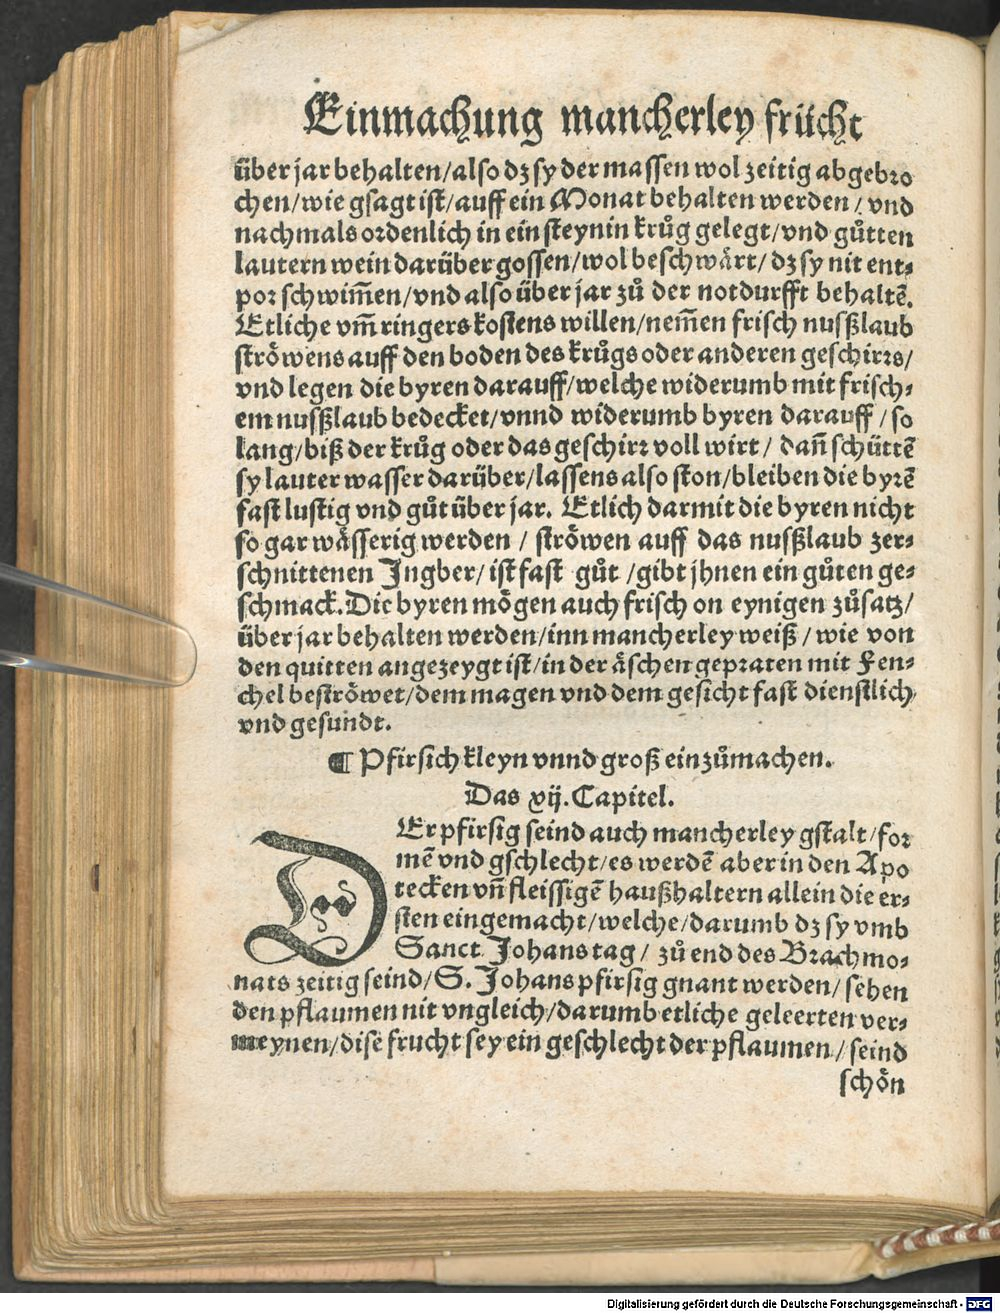 Einmachung mancherley frücht
über jar behalten/also dz sy der massen wol zeitig abgebro
chen/wie gsagt ist/auff ein Monat behalten werden/vnd
nachmals ordenlich in ein steynin krůg gelegt/vnd gůtten
lautern wein darüber gossen/wol beschwärt/dz sy nit ent⸗
por schwim̄en/vnd also über jar zů der notdurfft behaltē.
Etliche vm̄ ringers kostens willen/nem̄en frisch nusßlaub
ströwens auff den boden des krůgs oder anderen geschirrs/
vnd legen die byren darauff/welche widerumb mit frisch⸗
em nusßlaub bedecket/vnnd widerumb byren darauff/so
lang/biß der krůg oder das geschirr voll wirt/dañ schüttē
sy lauter wasser darüber/lassens also ston/bleiben die byrē
fast lustig vnd gůt über jar. Etlich darmit die byren nicht
so gar wässerig werden/ströwen auff das nusßlaub zer⸗
schnittenen Ingber/ist fast gůt/gibt jhnen ein gůten ge⸗
schmack. Die byren mögen auch frisch on eynigen zůsatz/
über jar behalten werden/inn mancherley weiß/wie von
den quitten angezeygt ist/in der äschen gepraten mit Fen⸗
chel beströwet/dem magen vnd dem gesicht fast dienstlich
vnd gesundt.
¶ Pfirsich kleyn vnnd groß einzůmachen.
Das xij. Capitel.
DEr pfirsig seind auch mancherley gstalt/for
mē vnd gschlecht/es werdē aber in den Apo
tecken vñ fleissigē haußhaltern allein die er⸗
sten eingemacht/welche/darumb dz sy vmb
Sanct Johans tag/zů end des Brachmo⸗
nats zeitig seind/S. Johans pfirsig gnant werden/sehen
den pflaumen nit vngleich/darumb etliche geleerten ver⸗
meynen/dise frucht sey ein geschlecht der pflaumen/seind
schön
Digitalisierung gefördert durch die Deutsche Forschungsgemeinschaft - DFG